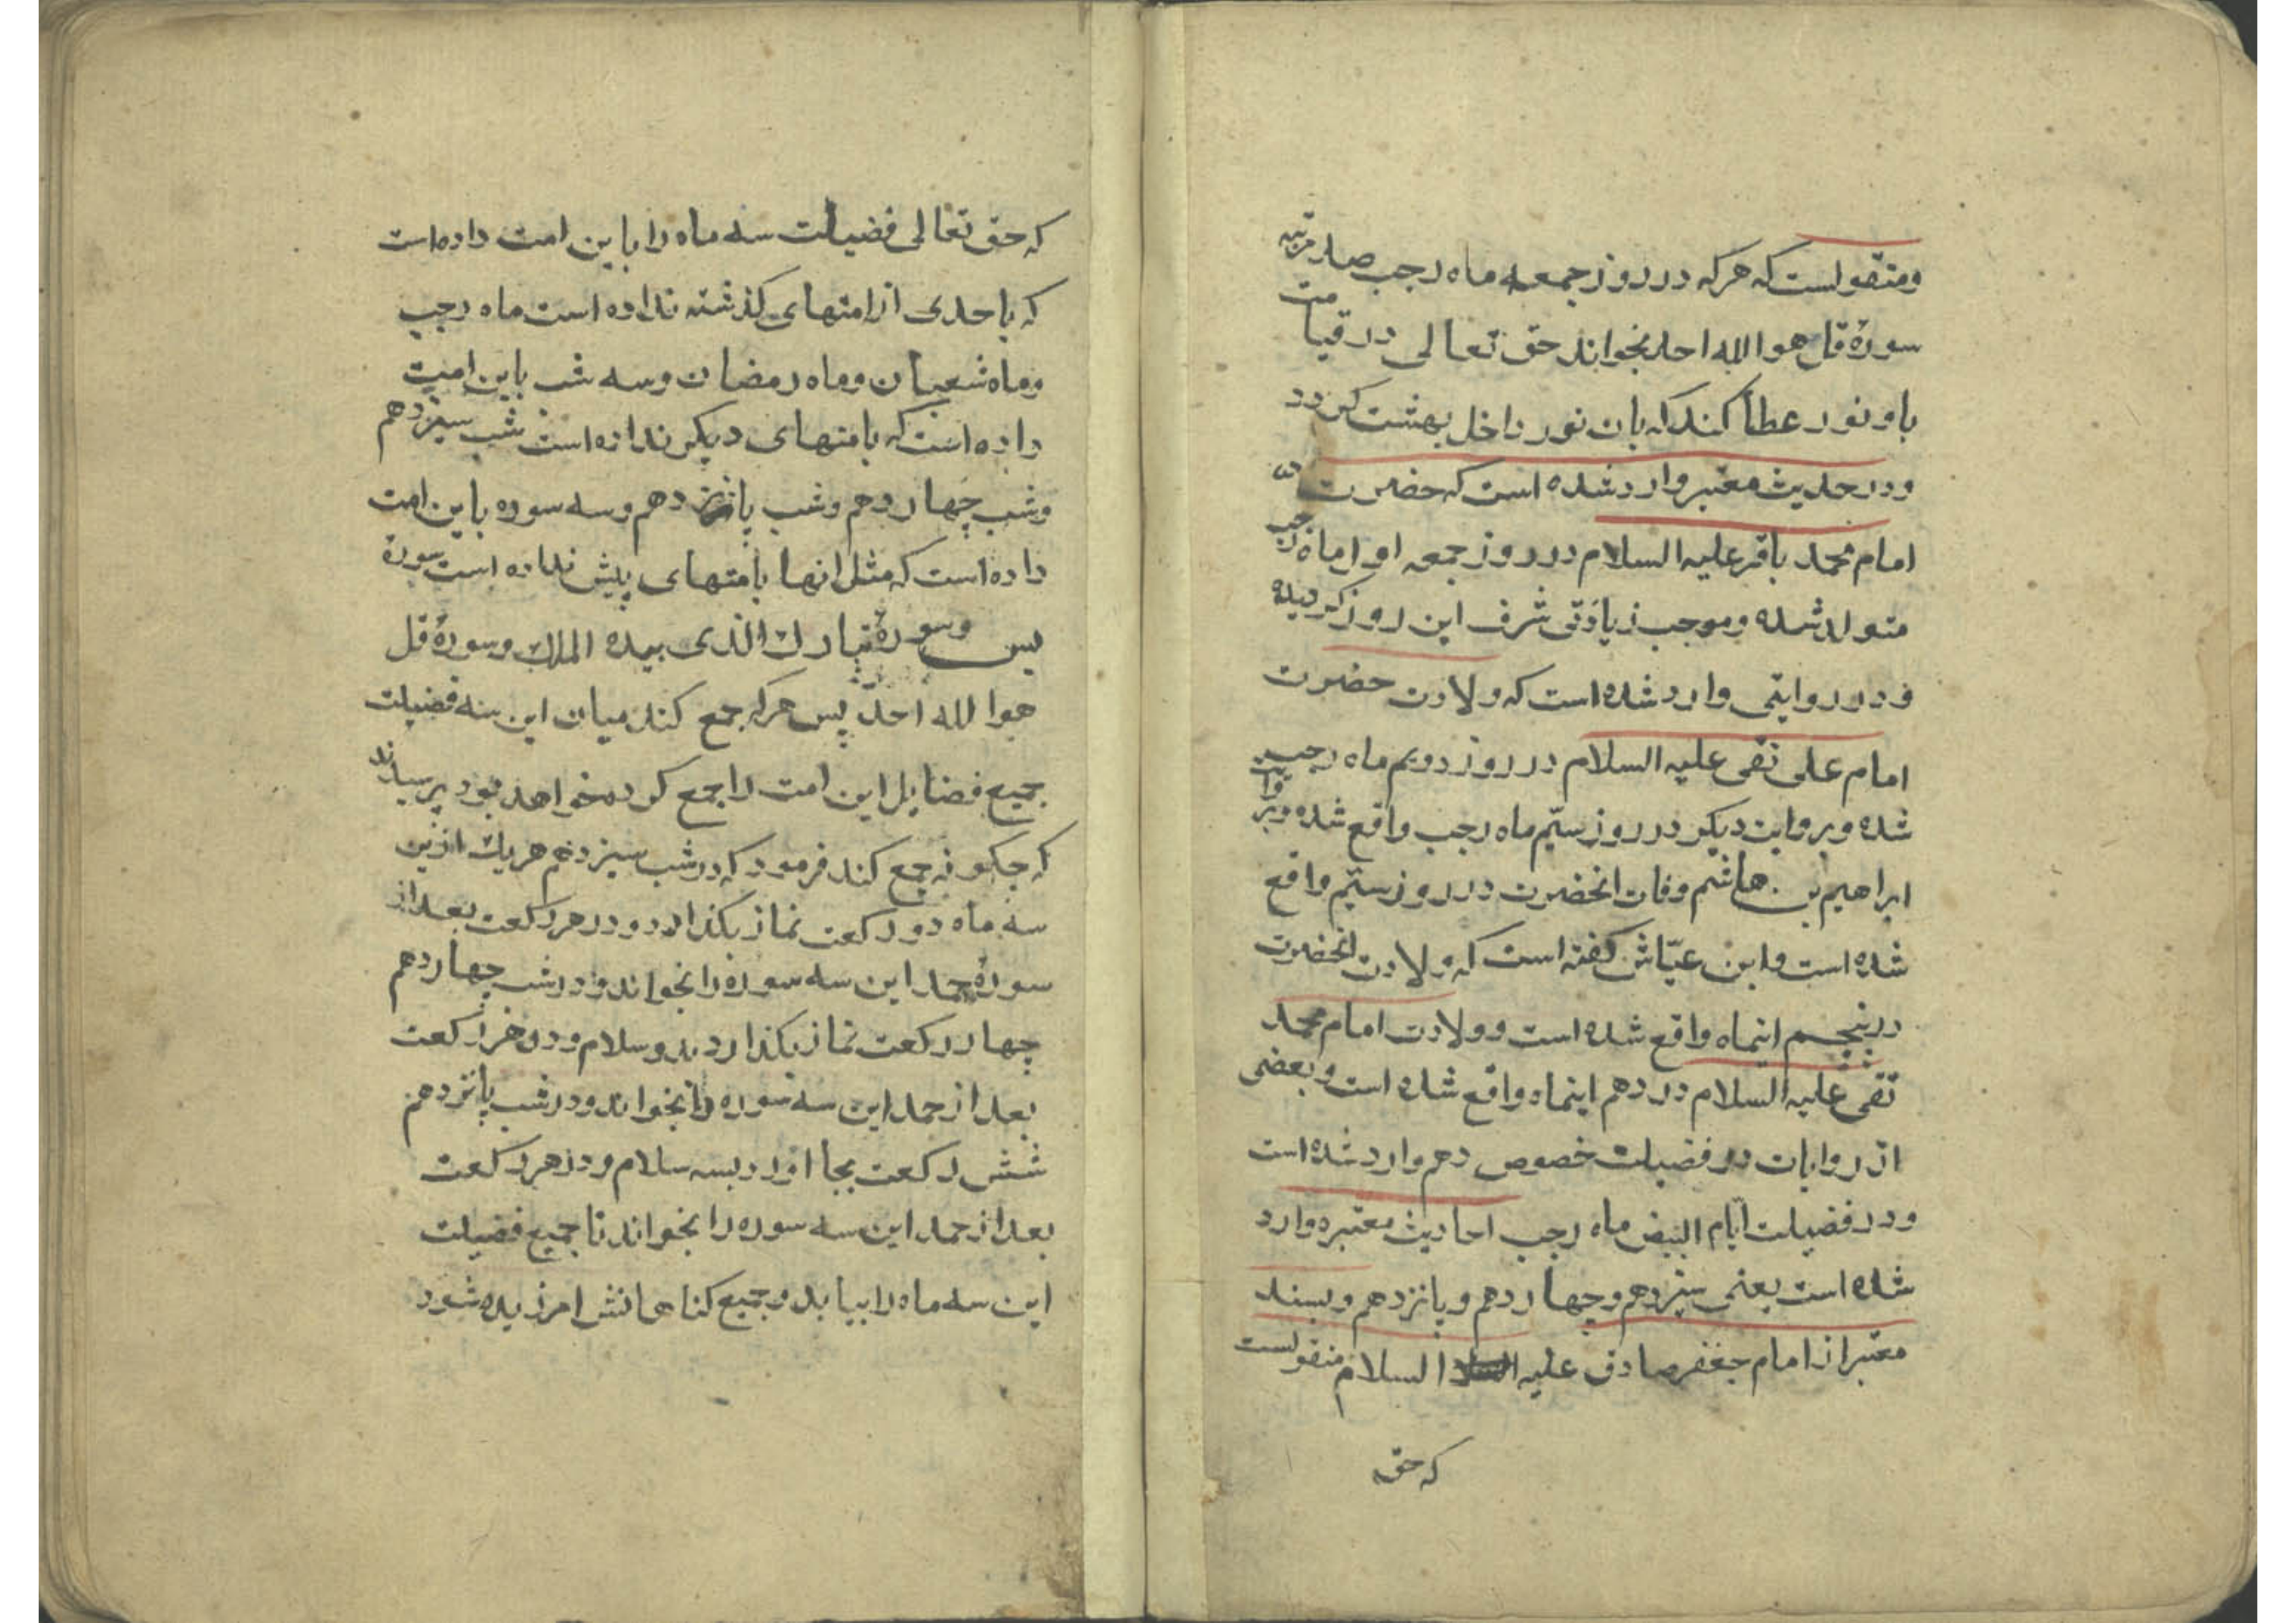 ومنقولست که هرکه در روز جمعه ماه رجب صد مرتبه
سورهٔ قل هو الله احد بخواند حق تعالی در قیامت
باو نور عطا کند که بان نور داخل بهشت کردد
ودر حدیث معتبر وارد شده است که حضرت
امام محمد باقر علیه السلام در روز جمعه اول ماه رجب
متولد شده وموجب زیادتی شرف این روز کردیده
ودر روایتی وارد شده است که ولادت حضرت
امام علی نقی علیه السلام در روز دویم ماه رجب
شده وبروایت دیکر در روز سیّم ماه رجب واقع شده وبروایت
ابراهیم بن هاشم وفات انحضرت در روز سیّم واقع
شده است وابن عیّاش کفته است که ولادت انحضرت
در پنجم اینماه واقع شده است وولادت امام محمد
تقی علیه السلام در دهم اینماه واقع شده است وبعضی
از روایات در فضیلت خصوص دهم وارد شده است
ودر فضیلت ایّام البیض ماه رجب احادیث معتبره وارد
شده است یعنی سیزدهم وچهاردهم وپانزدهم وبسند
معتبر از امام جعفر صادق علیه السلام منقولست
که حق
که حق تعالی فضیلت سه ماه را باین امت داده است
که باحدی از امتهای کذشته نداده است ماه رجب
وماه شعبان وماه رمضان وسه شب باین امت
داده است که بامتهای دیکر نداده است شب سیزدهم
وشب چهاردهم وشب پانزدهم وسه سوره باین امت
داده است که مثل انها بامتهای پیش نداده است سورهٔ
یس وسورهٔ تبارک الذی بیده الملک وسورهٔ قل
هو الله احد پس هرکه جمع کند میان این سه فضیلت
جمیع فضایل این امت را جمع کرده خواهد بود پرسیدند
که چکونه جمع کند فرمود که در شب سیزدهم هریک ازین
سه ماه دو رکعت نماز بکذارد ودر هر رکعت بعد از
سورهٔ حمد این سه سوره را بخواند ودر شب چهاردهم
چهار رکعت نماز بکذارد بدو سلام ودر هر رکعت
بعد از حمد این سه سوره را بخواند ودر شب پانزدهم
شش رکعت بجا اورد بسه سلام ودر هر رکعت
بعد از حمد این سه سوره را بخواند تا جمیع فضیلت
این سه ماه را بیابد وجمیع کناهانش امرزیده شود